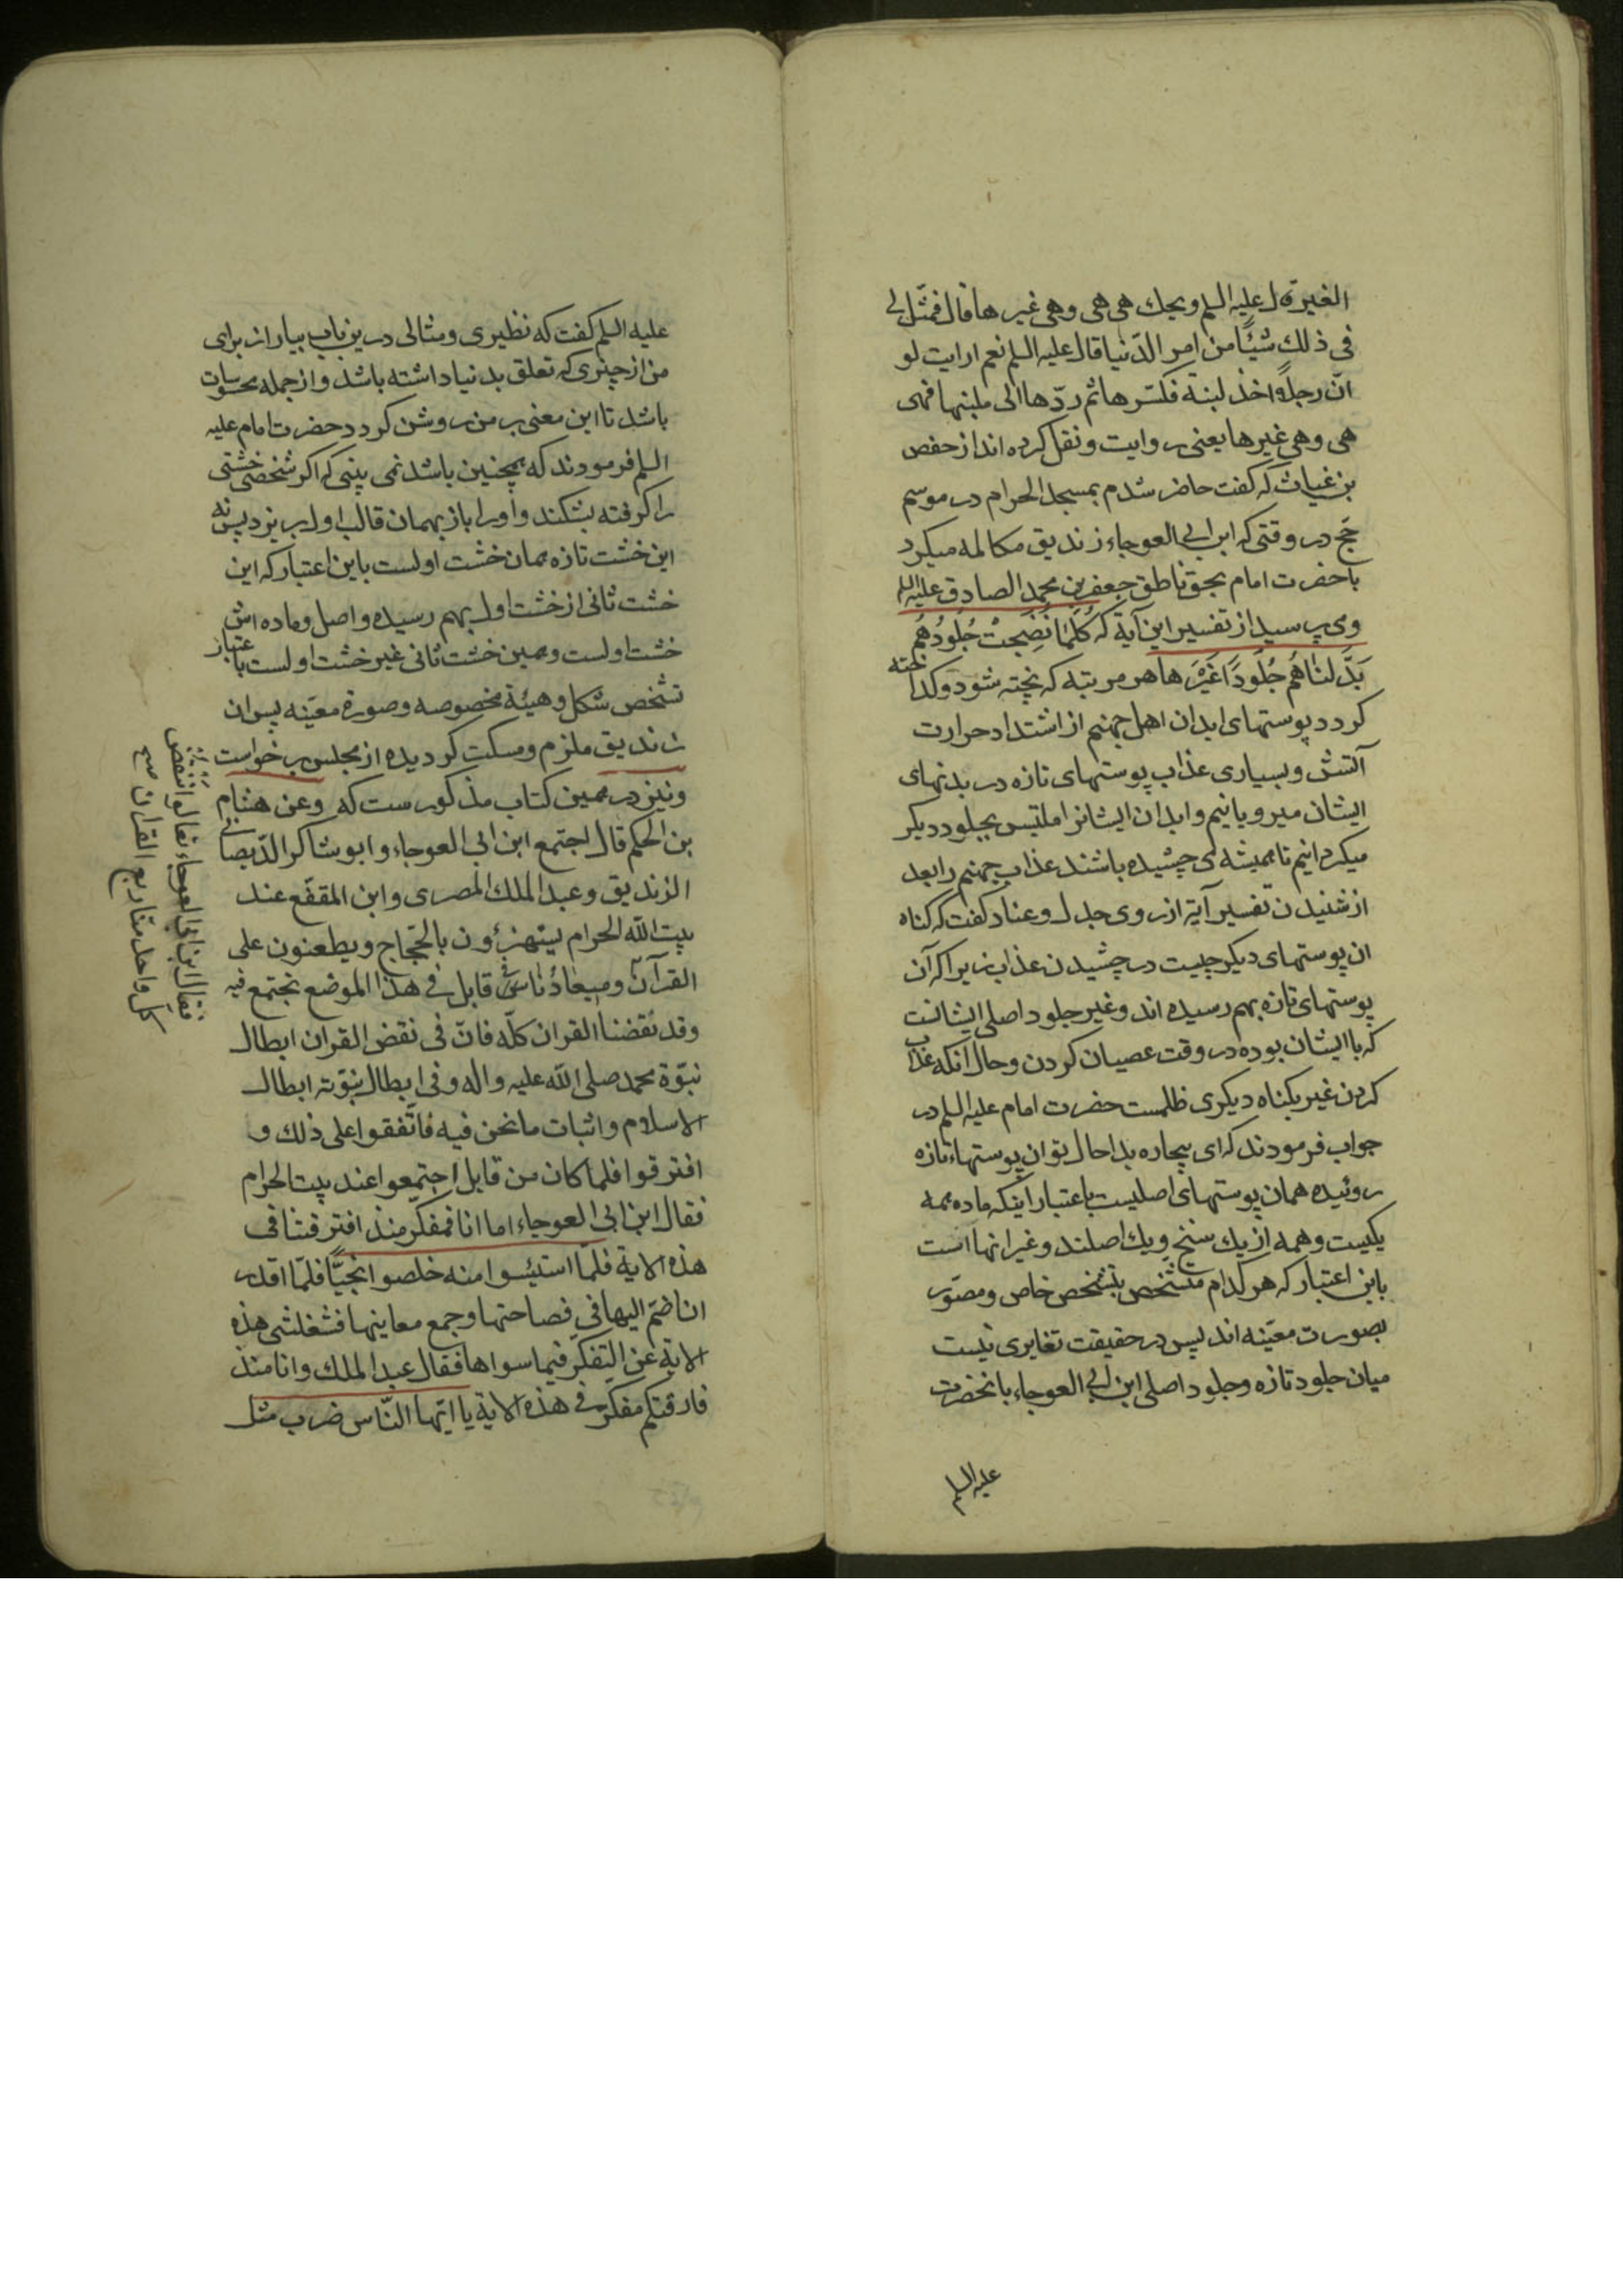 الغیر قال علیه السلم ویحک هی هی وهی غیرها قال فمثّل لی
فی ذلك شیئًا من امر الدّنیا قال علیه السلم نعم ارایت لو
انّ رجلًا اخذ لبنة فکسّرها ثم ردّها الی ملبنها فهی
هی وهی غیرها یعنی روایت ونقل کرده اند از حفص
بن غیاث که گفت حاضر شدم بمسجد الحرام در موسم
حجّ در وقتی که ابن ابی العوجاء زندیق مکالمه میکرد
با حضرت امام بحق ناطق جعفر بن محمد الصادق علیه السلم
وی پرسید از تفسیر این آیة که کُلَّمَا نُضِجَتْ جُلُودُهُم
بَدَّلنَاهُم جُلُودًا غَیْرَهَا هر مرتبه که پخته شود و کداخته
کردد پوستهای ابدان اهل جهنم از اشتداد حرارت
آتش وبسیاری عذاب پوستهای تازه در بدنهای
ایشان میرویانیم وابدان ایشانرا ملتبس بجلود دیگر
میکردانیم تا همیشه می چشیده باشند عذاب جهنم را بعد
از شنیدن تفسیر آیة از روی جدل وعناد گفت که کناه
ان پوستهای دیگر چیست در چشیدن عذاب زیرا که آن
پوستهای تازه بهم رسیده اند وغیر جلود اصلی ایشانست
که با ایشان بوده در وقت عصیان کردن وحال آنکه عذاب
کردن غیر بکناه دیکری ظلمست حضرت امام علیه السلم در
جواب فرمودند که ای بیچاره بد احال تو ان پوستهاء تازه
روئیده همان پوستهای اصلیست باعتبار اینکه ماده همه
یکیست وهمه از یك سنخ ویك اصلند وغیر انها است
باین اعتبار که هر کدام متشخّص بتشخص خاص ومصوّر
بصورت معیّنه اند پس در حقیقت تغایری نیست
میان جلود تازه وجلود اصلی ابن ابی العوجاء بانحضرت
علیه السلم
علیه السلم کفت که نظیری ومثالی درین باب بیار از برای
من از چیزی که تعلق بدنیا داشته باشد واز جمله محسوسات
باشد تا این معنی بر من روشن کردد حضرت امام علیه
السلم فرمودند که همچنین باشد نمی بینی که اکر شخصی خشتی
را کرفته بشکند واورا باز بهمان قالب اول بریزد پس نه
این خشت تازه همان خشت اولست باین اعتبار که این
خشت ثانی از خشت اول بهم رسیده واصل وماده اش
خشت اولست وهمین خشت ثانی غیر خشت اولست باعتبار
تشخص شکل وهیئة مخصوصه وصورة معیّنه پس ان
زندیق ملزم ومسکت کردیده از مجلس برخواست
ونیز در همین کتاب مذکورست که وعن هشام
بن الحکم قال اجتمع ابن ابی العوجاء وابو شاکر الدّیصانی
الزندیق وعبد الملك المصری وابن المقفّع عند
بیت الله الحرام یستهزؤن بالحجّاج ویطعنون علی
القرآن
ومیعادُنا من قابل فی هذا الموضع نجتمع فیه
وقد نقضنا القران کلّه فانّ فی نقض القران ابطال
نبوّة محمد صلی الله علیه واله وفی ابطال نبوّته ابطال
الاسلام واثبات ما نحن فیه فاتّفقوا علی ذلك و
افترقوا فلما کان من قابل اجتمعوا عند بیت الحرام
فقال ابن ابی العوجاء اما انا فمفکّر منذ افترقنا فی
هذه الایة فلمّا استیئسوا منه خلصوا نجیًّا فلمّا اقدر
ان اضمّ الیها فی فصاحتها وجمع معانیها فشغلتنی هذه
الایة عن التفکّر فیما سواها فقال عبد الملك وانا منذ
فارقتکم مفکّر فی هذه الایة یا ایّها النّاس ضرب مثل
فقال ابن ابی العوجاء تعالوا ننقض
کل واحد منّا ربع القران صح